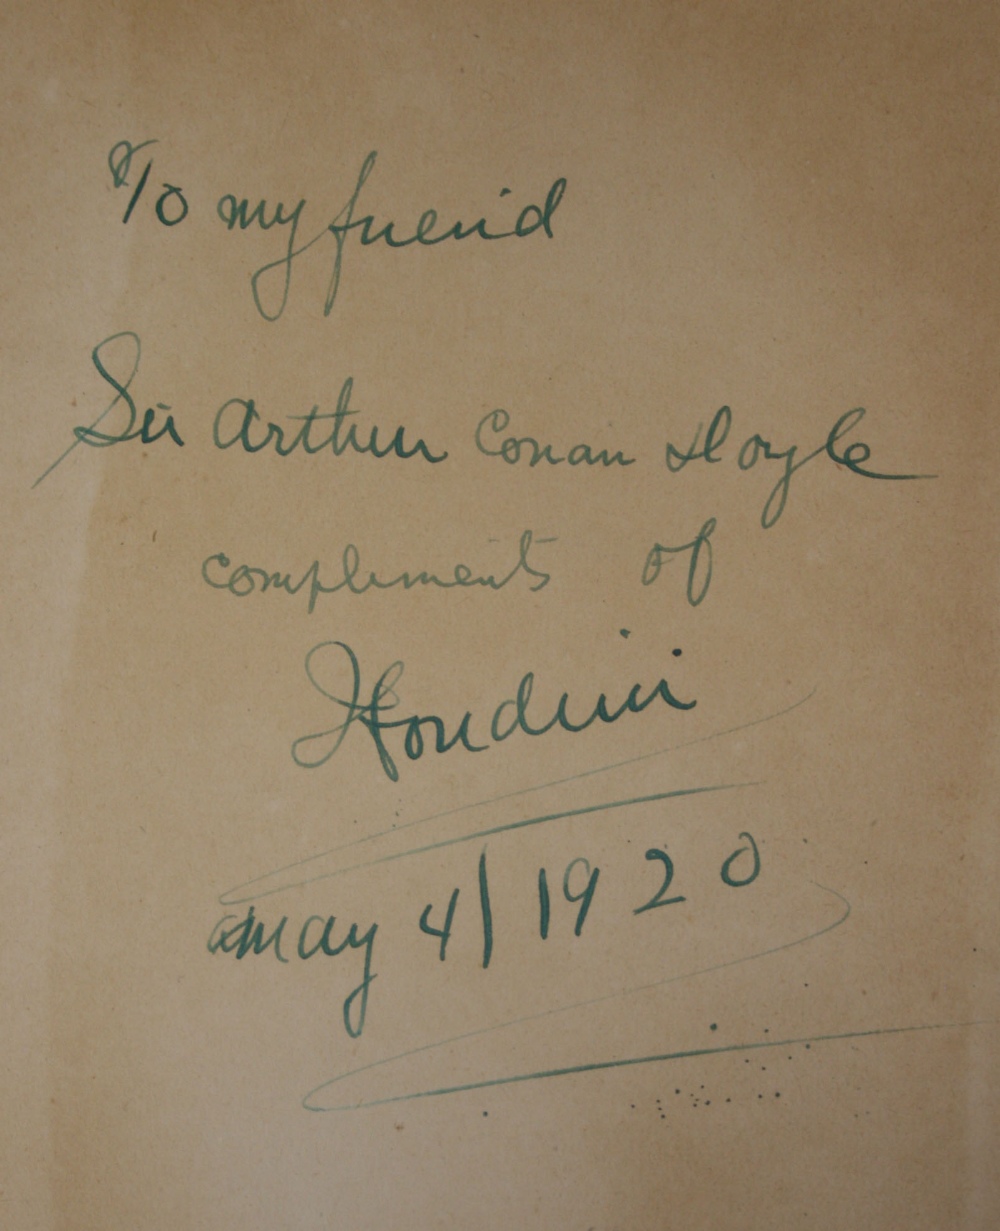 To my friend
Sir Arthur Conan Doyle
compliments of
Houdini
May 4/1920